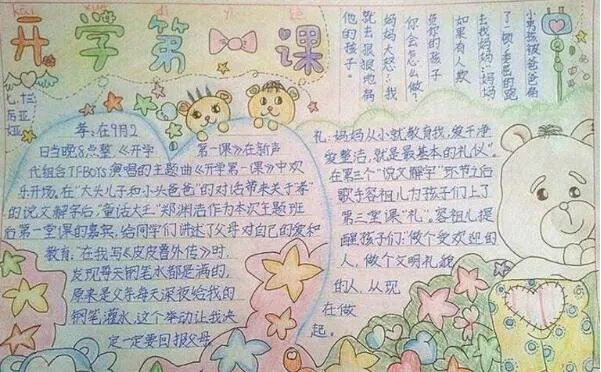 kāi xué dì yī kè
开学第一课
七、十三
孝:在9月2
日当晚8点整《开学第一课》在新声
代组合TFBOYS演唱的主题曲《开学第一课》中欢
乐开场。在“大头儿子和小头爸爸”的对话带来关于孝”
的说文解字后,“童话大王”郑渊洁作为本次主题班
后第一堂课的嘉宾,给同学们讲述了父母对自己的爱和
教育,在我写《皮皮鲁外传》时,
发现每天钢笔水都是满的,
原来是父年每天深夜给我的
钢笔灌水,这个举动让我决
定一定要回报父母。
小男孩被爸爸痛
了一顿,李密的跑
去找妈妈:妈妈
如果有人欺
负你的孩子
你会怎么做?
妈妈大怒:我
就去狠狠地揍
他的孩子。
礼:妈妈从小就教育我,爱干净
爱整洁,就是最基本的礼仪”。
在第三个“说文解字”环节之后
歌手容祖儿为孩子们上了
第三堂课“礼”。容祖儿提
醒孩子们:做个受欢迎的
人,做个文明礼貌
的人,从现
在做
起。